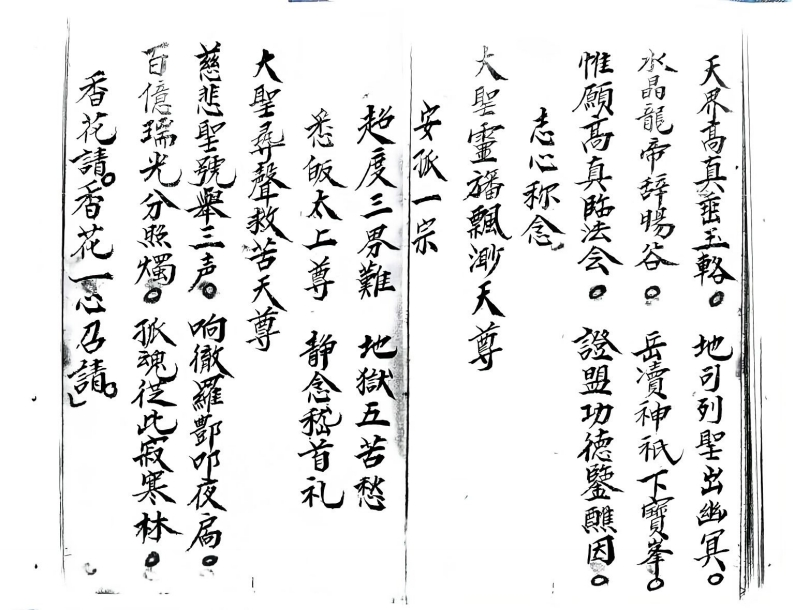 天界高真垂玉輅。　地司列聖出幽冥。
水晶龍帝辞暘谷。　岳瀆神祇下寶峯。
惟願高真臨法会。　證盟功德鑒醮因。
志心称念
大聖靈旛飄渺天尊
安孤一宗
超度三界難　地獄五苦愁
悉皈太上尊　静念稽首礼
大聖尋聲救苦天尊
慈悲聖號舉三声。　响徹羅酆叩夜扃。
百億瑞光分照燭。　孤魂從此寂寒林。
香花請。香花一心召請。